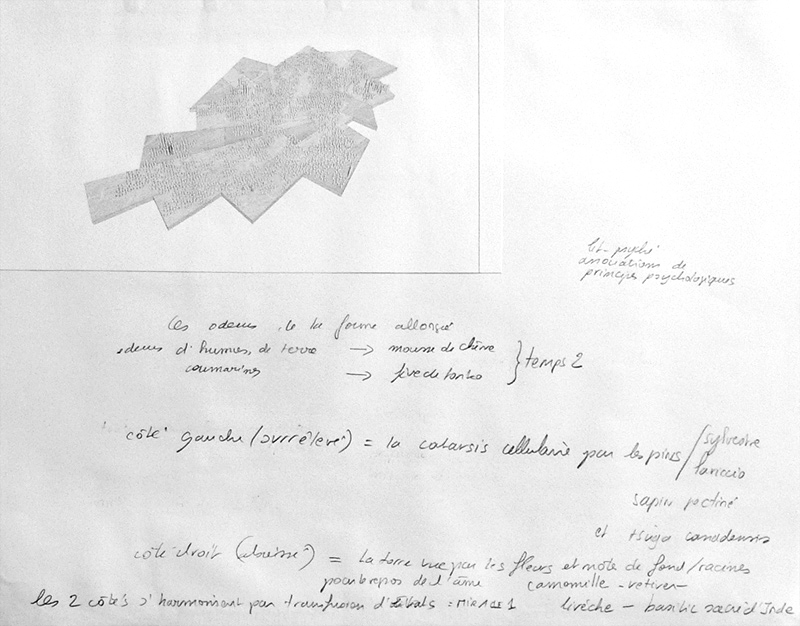 lit-psyché
associations de
principes psychologiques
les odeurs de la forme allongée
odeurs d'humus, de terre → mousse de chêne
coumarines → fève de tonka
} temps 2
côté gauche (surrélevé) = la catarsis cellulaire par les pins / sylvestre
laricio
sapin pectiné
et tsuga canadensis
côté droit (abaissé) = la terre vue par les fleurs et note de fond/racines
pour repos de l'âme camomille - vetiver -
les 2 côtés s'harmonisent par transfusion d' = livèche - basilic sacré d'Inde